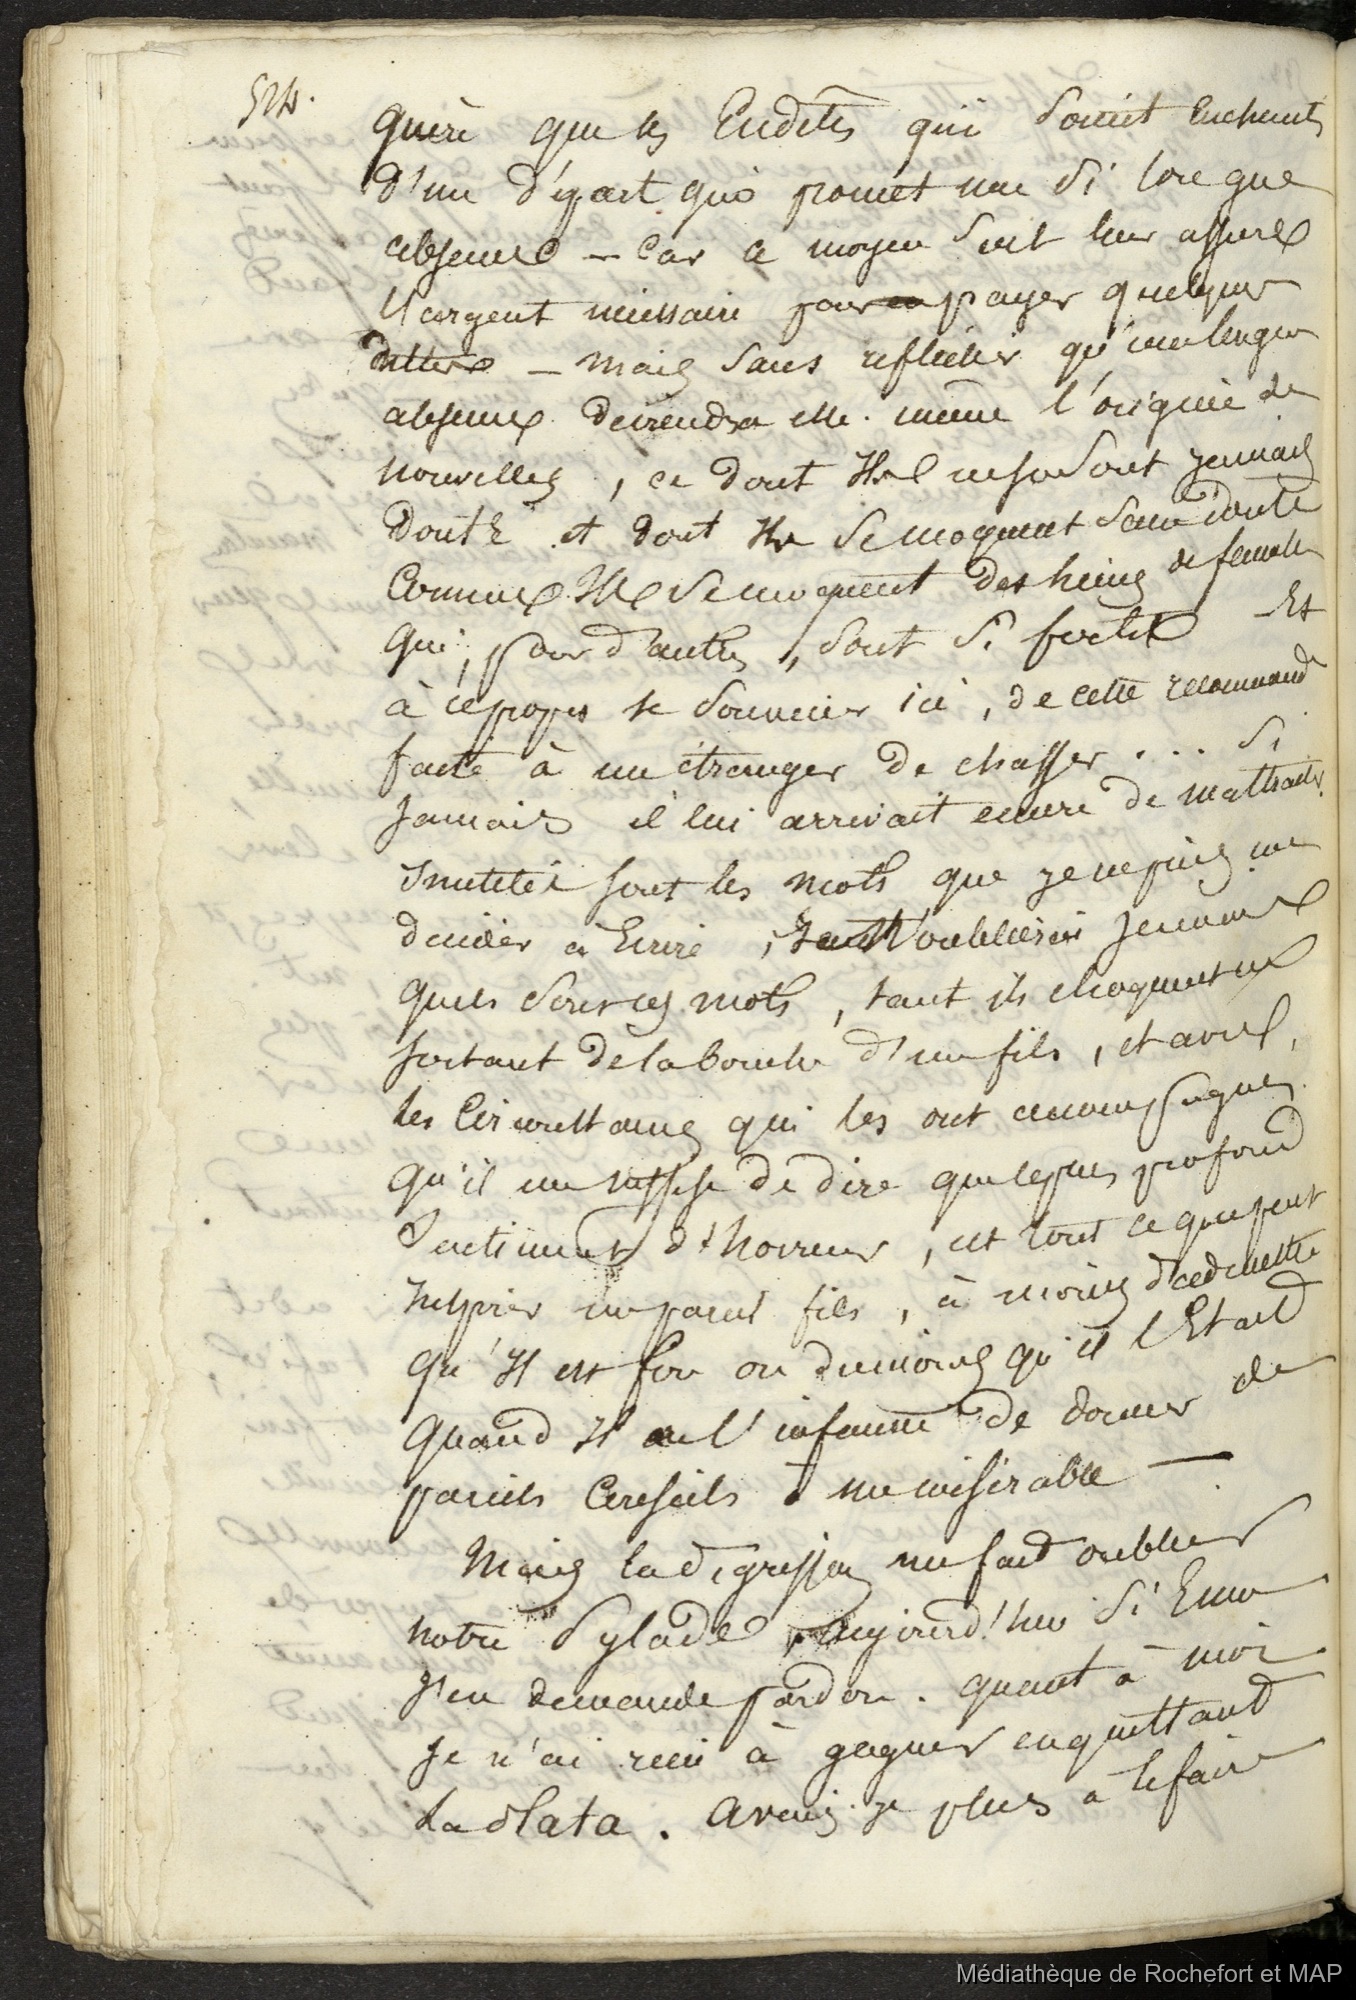 524.
guère que les Endettés qui soient enchantés
d'un départ qui promet une si longue
absence — Car ce moyen seul leur assure
l'argent nécessaire pour payer quelques
dettes — mais sans réfléchir qu'une longue
absence deviendra elle même l'origine de
nouvelles, ce dont Ils ne se sont jamais
douté et dont Ils se moquent sans doute
Comme Ils se moquent des haines de famille
qui, pour d'autres, sont si fortes Et
à ce propos se souvenir ici, de cette recommand
faite à un étranger de chasser . . . . si
jamais il lui arrivait encore de
Inutiles sont les mots que je ne puis me
décider à Ecrire, Je n'oublierai jamais
quels sont ces mots, tant ils choquent en
sortant de la bouche d'un fils, et avec,
les Circonstances qui les ont accompagnés
qu'il me suffise de dire que le plus profond
sentiment d'horreur, est tout ce que peut
Inspirer un pareil fils, à moins d'admettre
qu'Il est fou ou du moins qu'il l'Etait
quand Il a eu l'infamie de donner de
pareils Conseils à un misérable —
Mais la digression me fait oublier
notre Pylade, aujourd'hui si Ennu
J'en demande pardon. quant à moi
je n'ai rien à gagner en quittant
La Plata. avais-je plus à le faire
Médiathèque de Rochefort et MAP